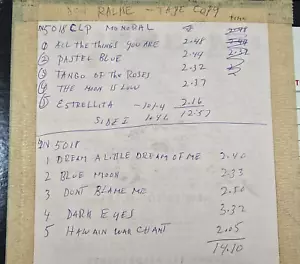 RALKE - TAPE COPY
5018 CLP MONORAL
① ALL THE THINGS YOU ARE 2.48 2.48
② PASTEL BLUE 2.44 2.44
③ TANGO OF THE ROSES 2.32 2.32
④ THE MOON IS LOW 2.37
⑤ ESTRELLITA 2.16
SIDE I 12.57
5018
1 DREAM A LITTLE DREAM OF ME 2.40
2 BLUE MOON 2.33
3 DONT BLAME ME 2.50
4 DARK EYES 3.32
5 HAWAIN WAR CHANT 2.05
14.10